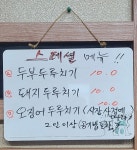 스페셜 메뉴!!
① 두부두루치기 10.0
② 돼지두루치기 10.0
③ 오징어두루치기 (시장
2인 이상